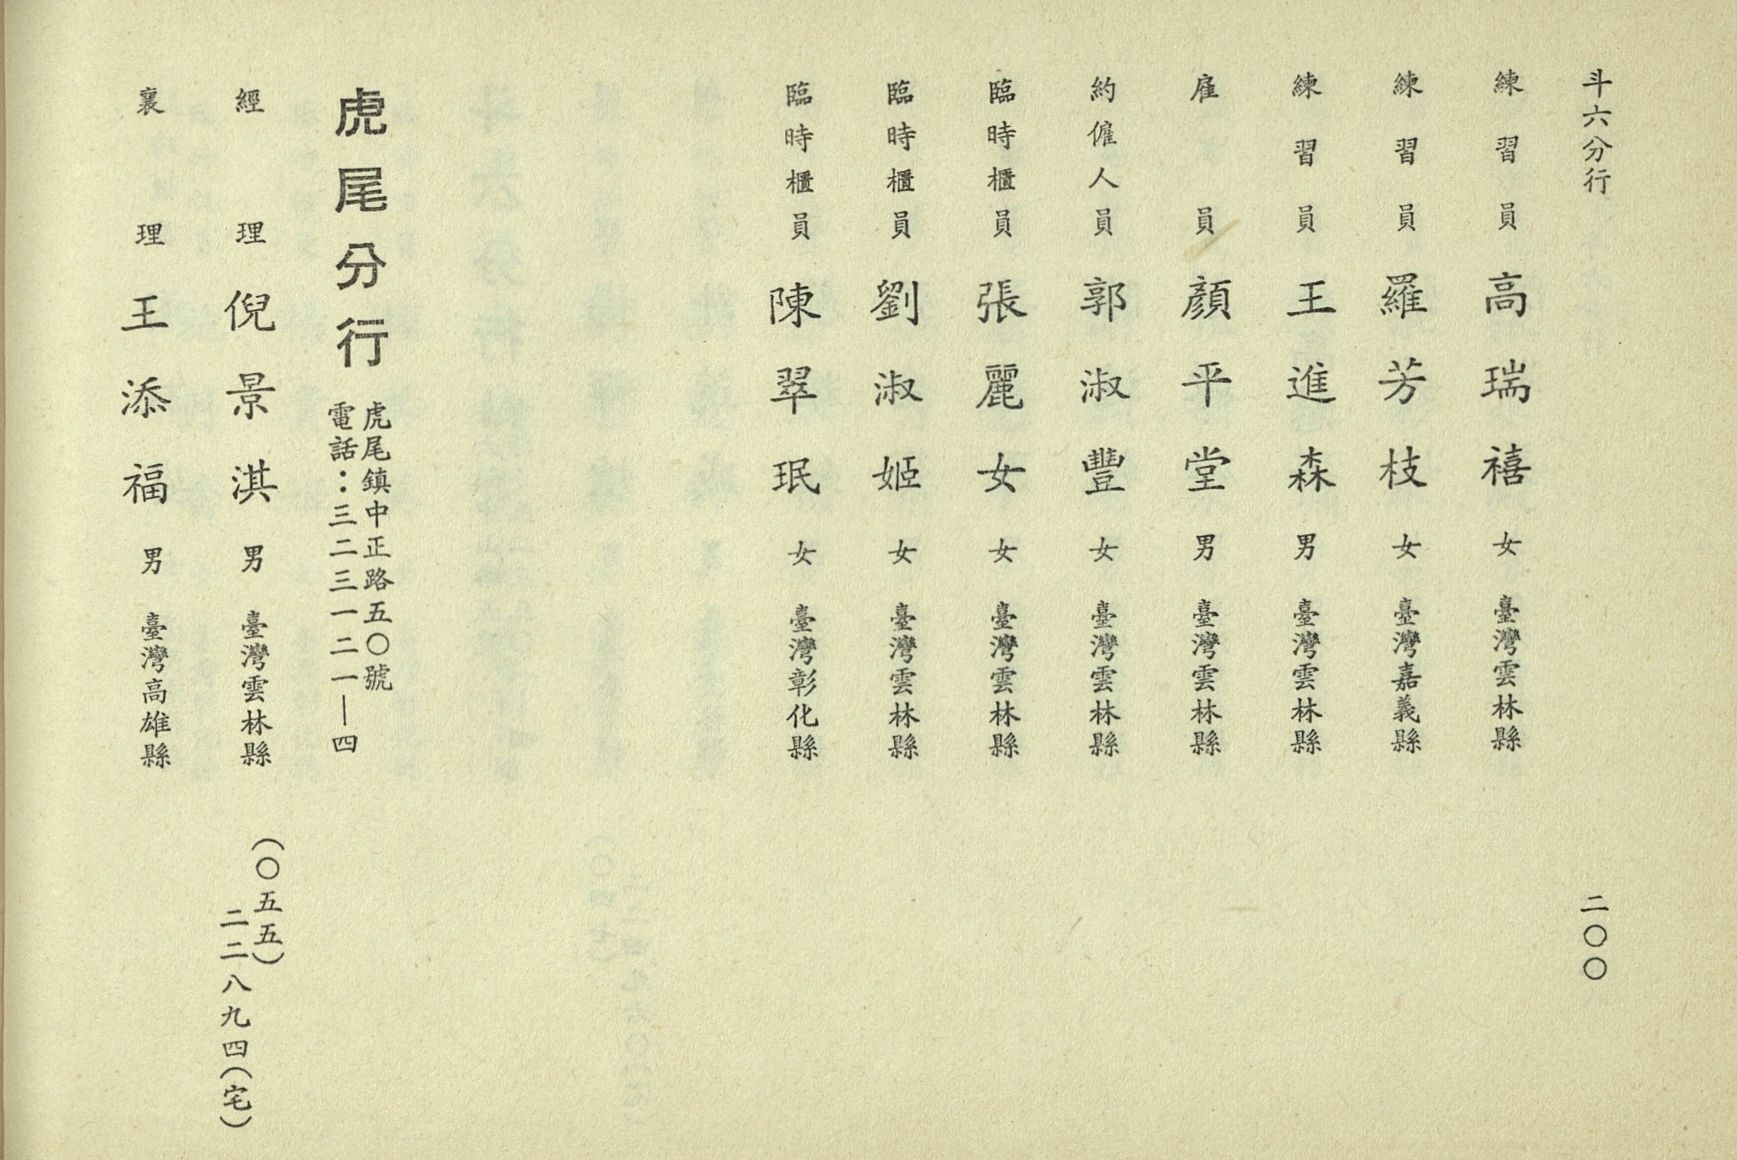 斗六分行
二〇〇
練習員 高瑞禧 女 臺灣雲林縣
練習員 羅芳枝 女 臺灣嘉義縣
練習員 王進森 男 臺灣雲林縣
雇員 顏平堂 男 臺灣雲林縣
約僱人員 郭淑豐 女 臺灣雲林縣
臨時櫃員 張麗女 女 臺灣雲林縣
臨時櫃員 劉淑姬 女 臺灣雲林縣
臨時櫃員 陳翠珉 女 臺灣彰化縣
虎尾分行
虎尾鎮中正路五〇號
電話：三二三一二一—四
經理 倪景淇 男 臺灣雲林縣
（〇五五）
二二八九四（宅）
襄理 王添福 男 臺灣高雄縣